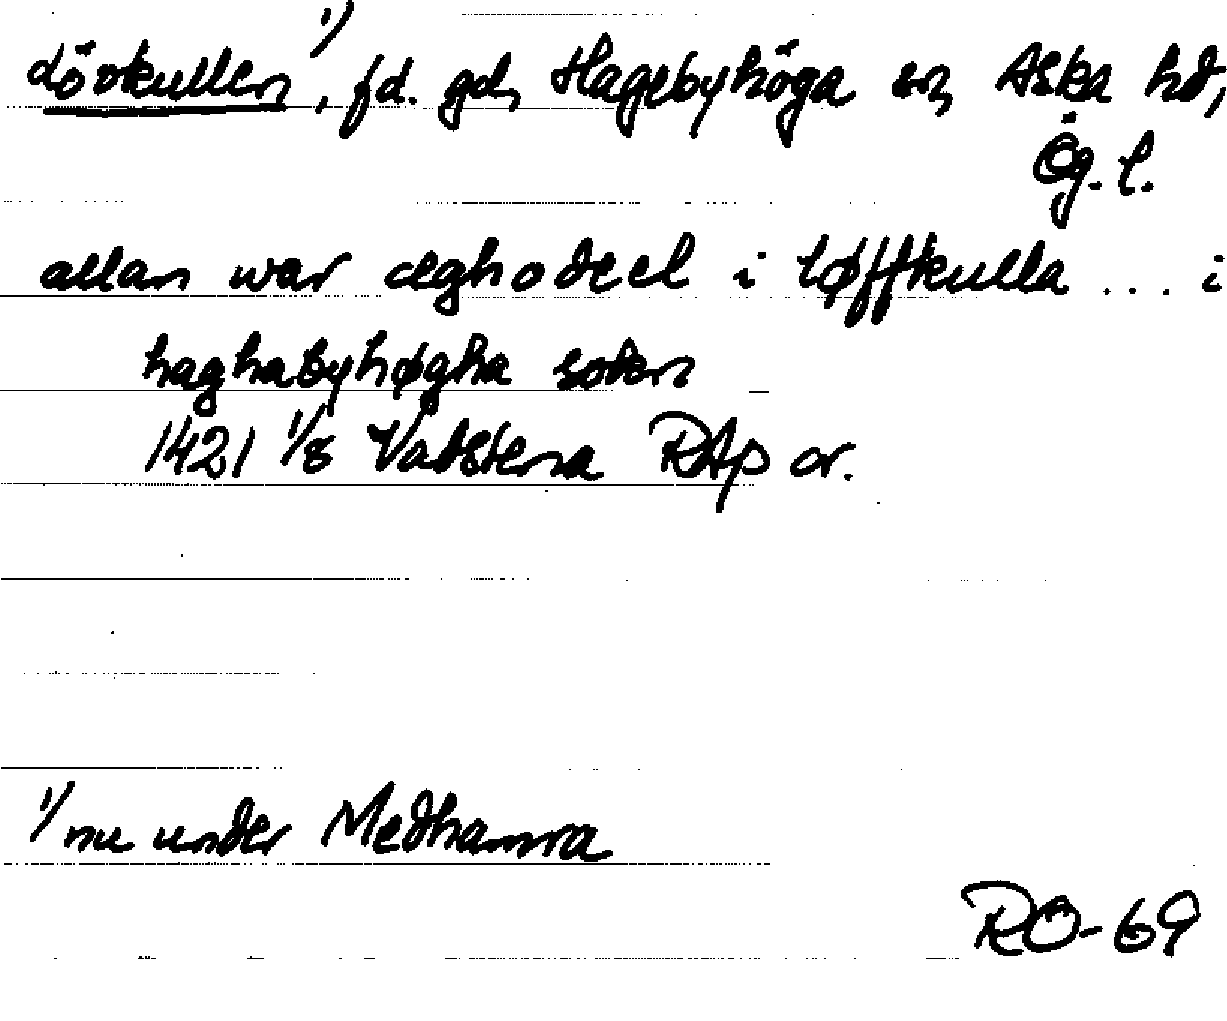 Lövkullen ¹⁾, fd. gd, Hagebyhöga sn, Aska hd,
Ög. l.
allan war æghodeel i løffkulla ... i
haghabyhøgha sokn
1421 1/8 Vadstena RAp or.
1/ nu under Medhamra
RO-69